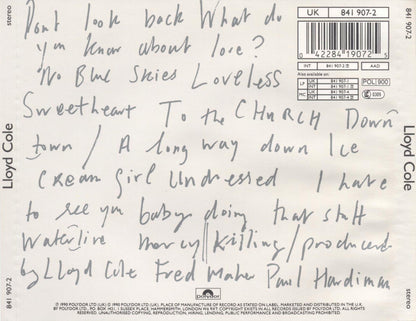 stereo
841 907-2
Lloyd Cole
841 907-2
Don't look back What do
you know about love?
No Blue Skies Loveless
Sweetheart To the CHURCH Down
town / A long way down Ice
Cream Girl Undressed I hate
to see you baby doing that stuff
Waterline Mercy Killing / produced
by Lloyd Cole Fred Maher Paul Hardiman
UK 841 907-2
0 42284 19072 5
INT 841 907-2
AAD
Also available on
LP
UK 841 907-1
INT 841 907-1
MC
UK 841 907-4
INT 841 907-4
POL 900
polydor
℗ 1990 POLYDOR LTD (UK) © 1990 POLYDOR LTD. (UK). PLACE OF MANUFACTURE OF RECORD AS STATED ON LABEL. MARKETED AND DISTRIBUTED IN THE U.K.
BY POLYDOR LTD., PO BOX 1421, 1 SUSSEX PLACE, HAMMERSMITH, LONDON W6 9XT COPYRIGHT EXISTS IN ALL RECORDINGS ISSUED BY POLYDOR LTD. ALL RIGHTS
RESERVED. UNAUTHORISED COPYING, REPRODUCTION, HIRING, LENDING, PUBLIC PERFORMANCE AND BROADCASTING PROHIBITED.
stereo
841 907-2
Lloyd Cole
841 907-2